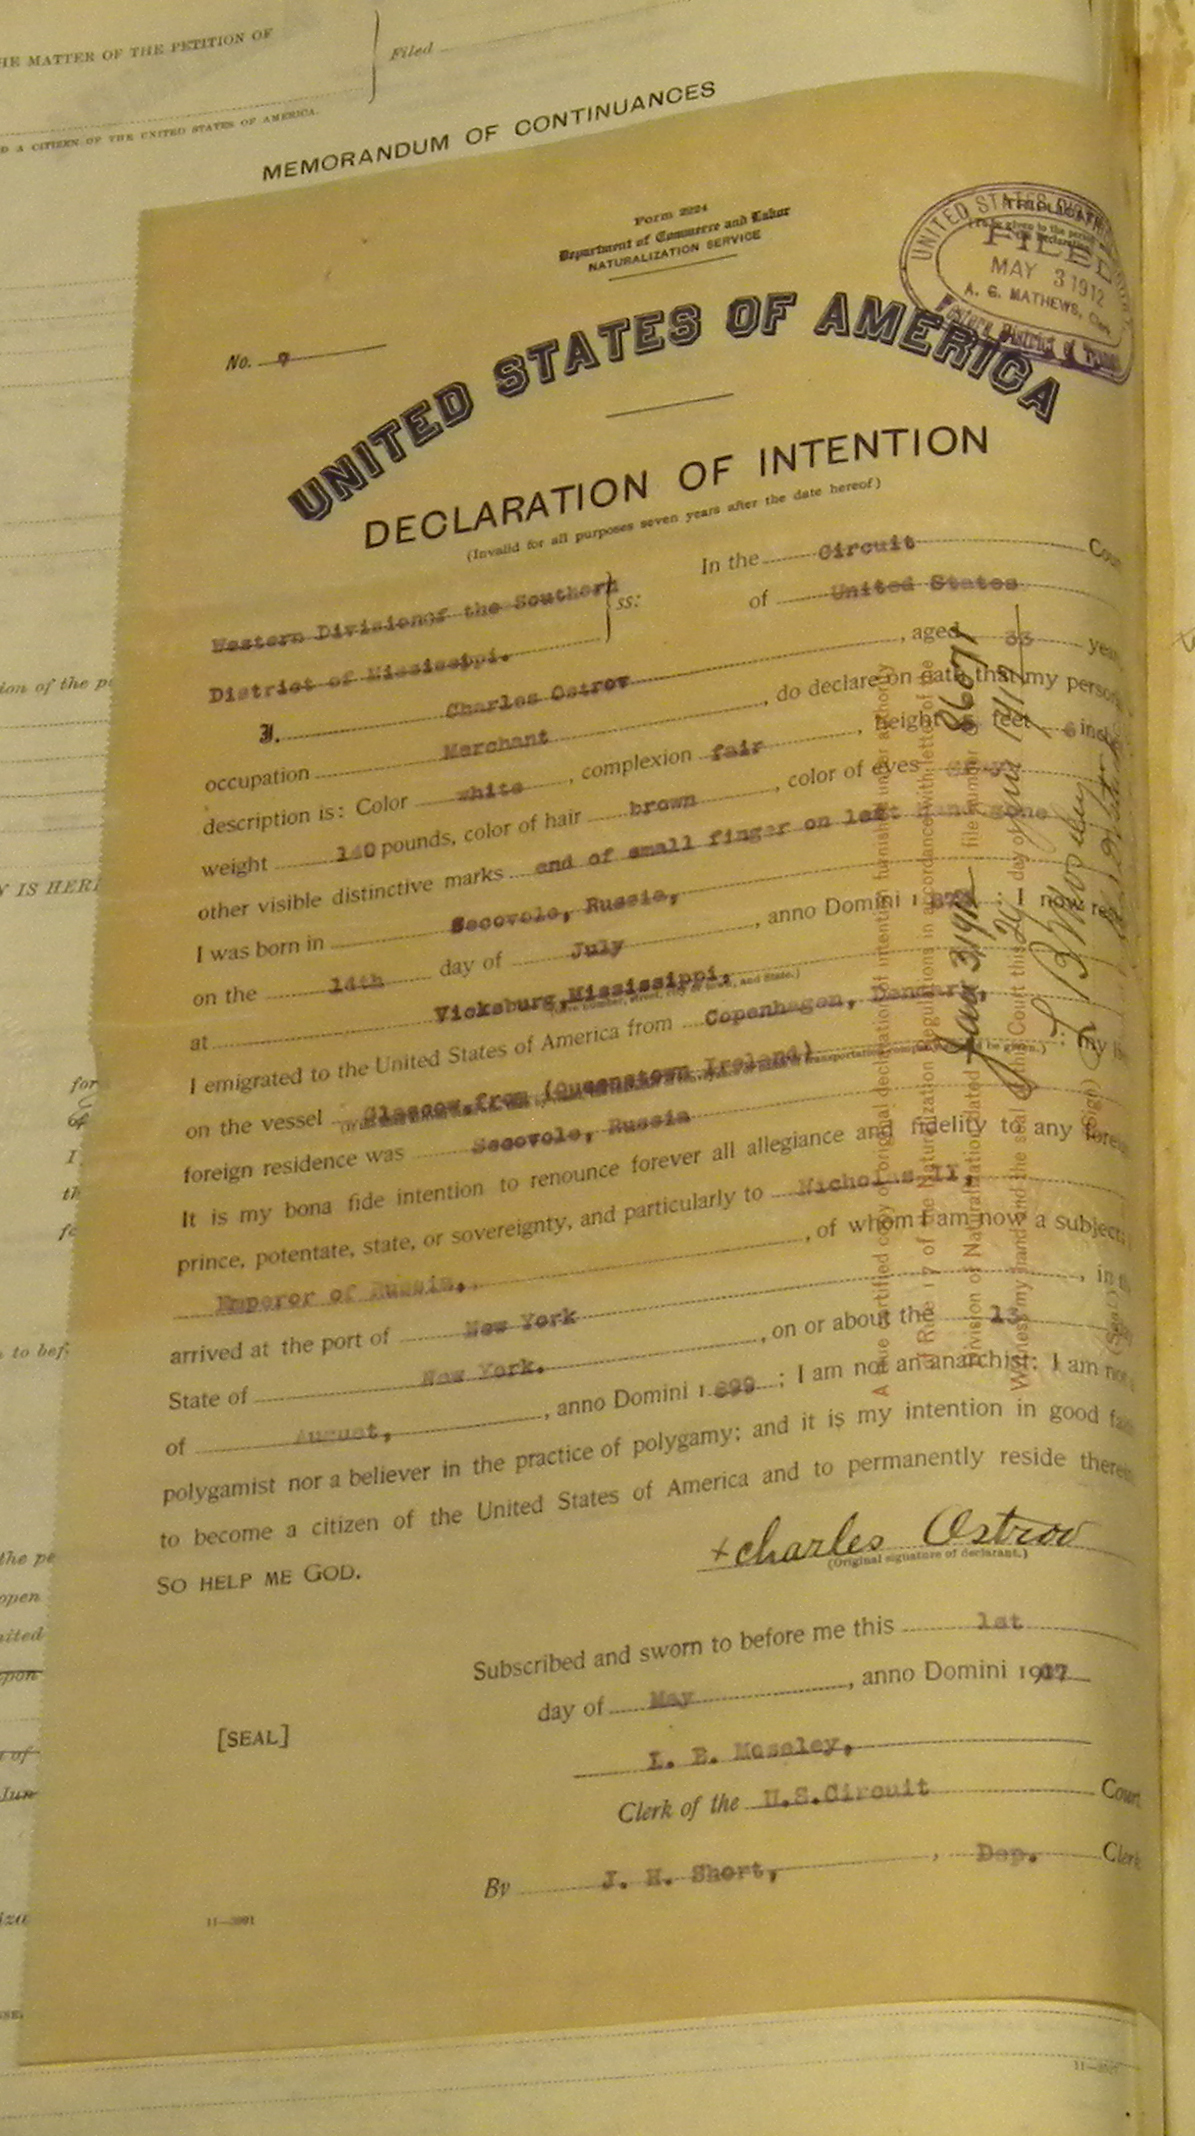 HE MATTER OF THE PETITION OF
Filed
D A CITIZEN OF THE UNITED STATES OF AMERICA.
MEMORANDUM OF CONTINUANCES
Form 2224
Department of Commerce and Labor
NATURALIZATION SERVICE
TRIPLICATE
UNITED STATES
FILED
MAY 3 1912
A. G. MATHEWS, Clerk
Eastern District of
No.
UNITED STATES OF AMERICA
DECLARATION OF INTENTION
(Invalid for all purposes seven years after the date hereof)
In the Circuit Cou
Western Division of the Southern
ss:
of United States
District of Mississippi.
I, Charles Ostrov, aged 33 year
occupation Merchant, do declare on oath that my person
description is: Color white, complexion fair, height feet 6 inch
weight 140 pounds, color of hair brown, color of eyes
other visible distinctive marks end of small finger on left hand gone
I was born in Secovole, Russia,
on the 14th day of July, anno Domini 1
; I now res
at Vicksburg, Mississippi,
I emigrated to the United States of America from Copenhagen, Denmark,
on the vessel Glascow, from (Queenstown Ireland) ; my
foreign residence was Secovole, Russia
It is my bona fide intention to renounce forever all allegiance and fidelity to any foreig
prince, potentate, state, or sovereignty, and particularly to Nicholas II,
Emperor of Russia, , of whom I am now a subject;
arrived at the port of New York, in th
State of New York. , on or about the 13
of August, , anno Domini 1 899 ; I am not an anarchist; I am not
polygamist nor a believer in the practice of polygamy; and it is my intention in good fai
to become a citizen of the United States of America and to permanently reside therei
SO HELP ME GOD.
+ Charles Ostrov
(Original signature of declarant.)
Subscribed and sworn to before me this 1st
day of May, anno Domini 1907
[SEAL]
L. B. Moseley,
Clerk of the U.S. Circuit Court
By J. H. Short, , Dep. Clerk
11—
A true certified copy of original declaration of intention furnished under authority
of Rule 17 of the Naturalization Regulations in accordance with letter of the
Division of Naturalization dated Jan 3, 1912 file number 8607
Witness my hand and the seal of this Court this day of
L B Moseley
Y IS HER
ion of the pe
for
to bef
the pe
open
nited
upon
t of
Jun